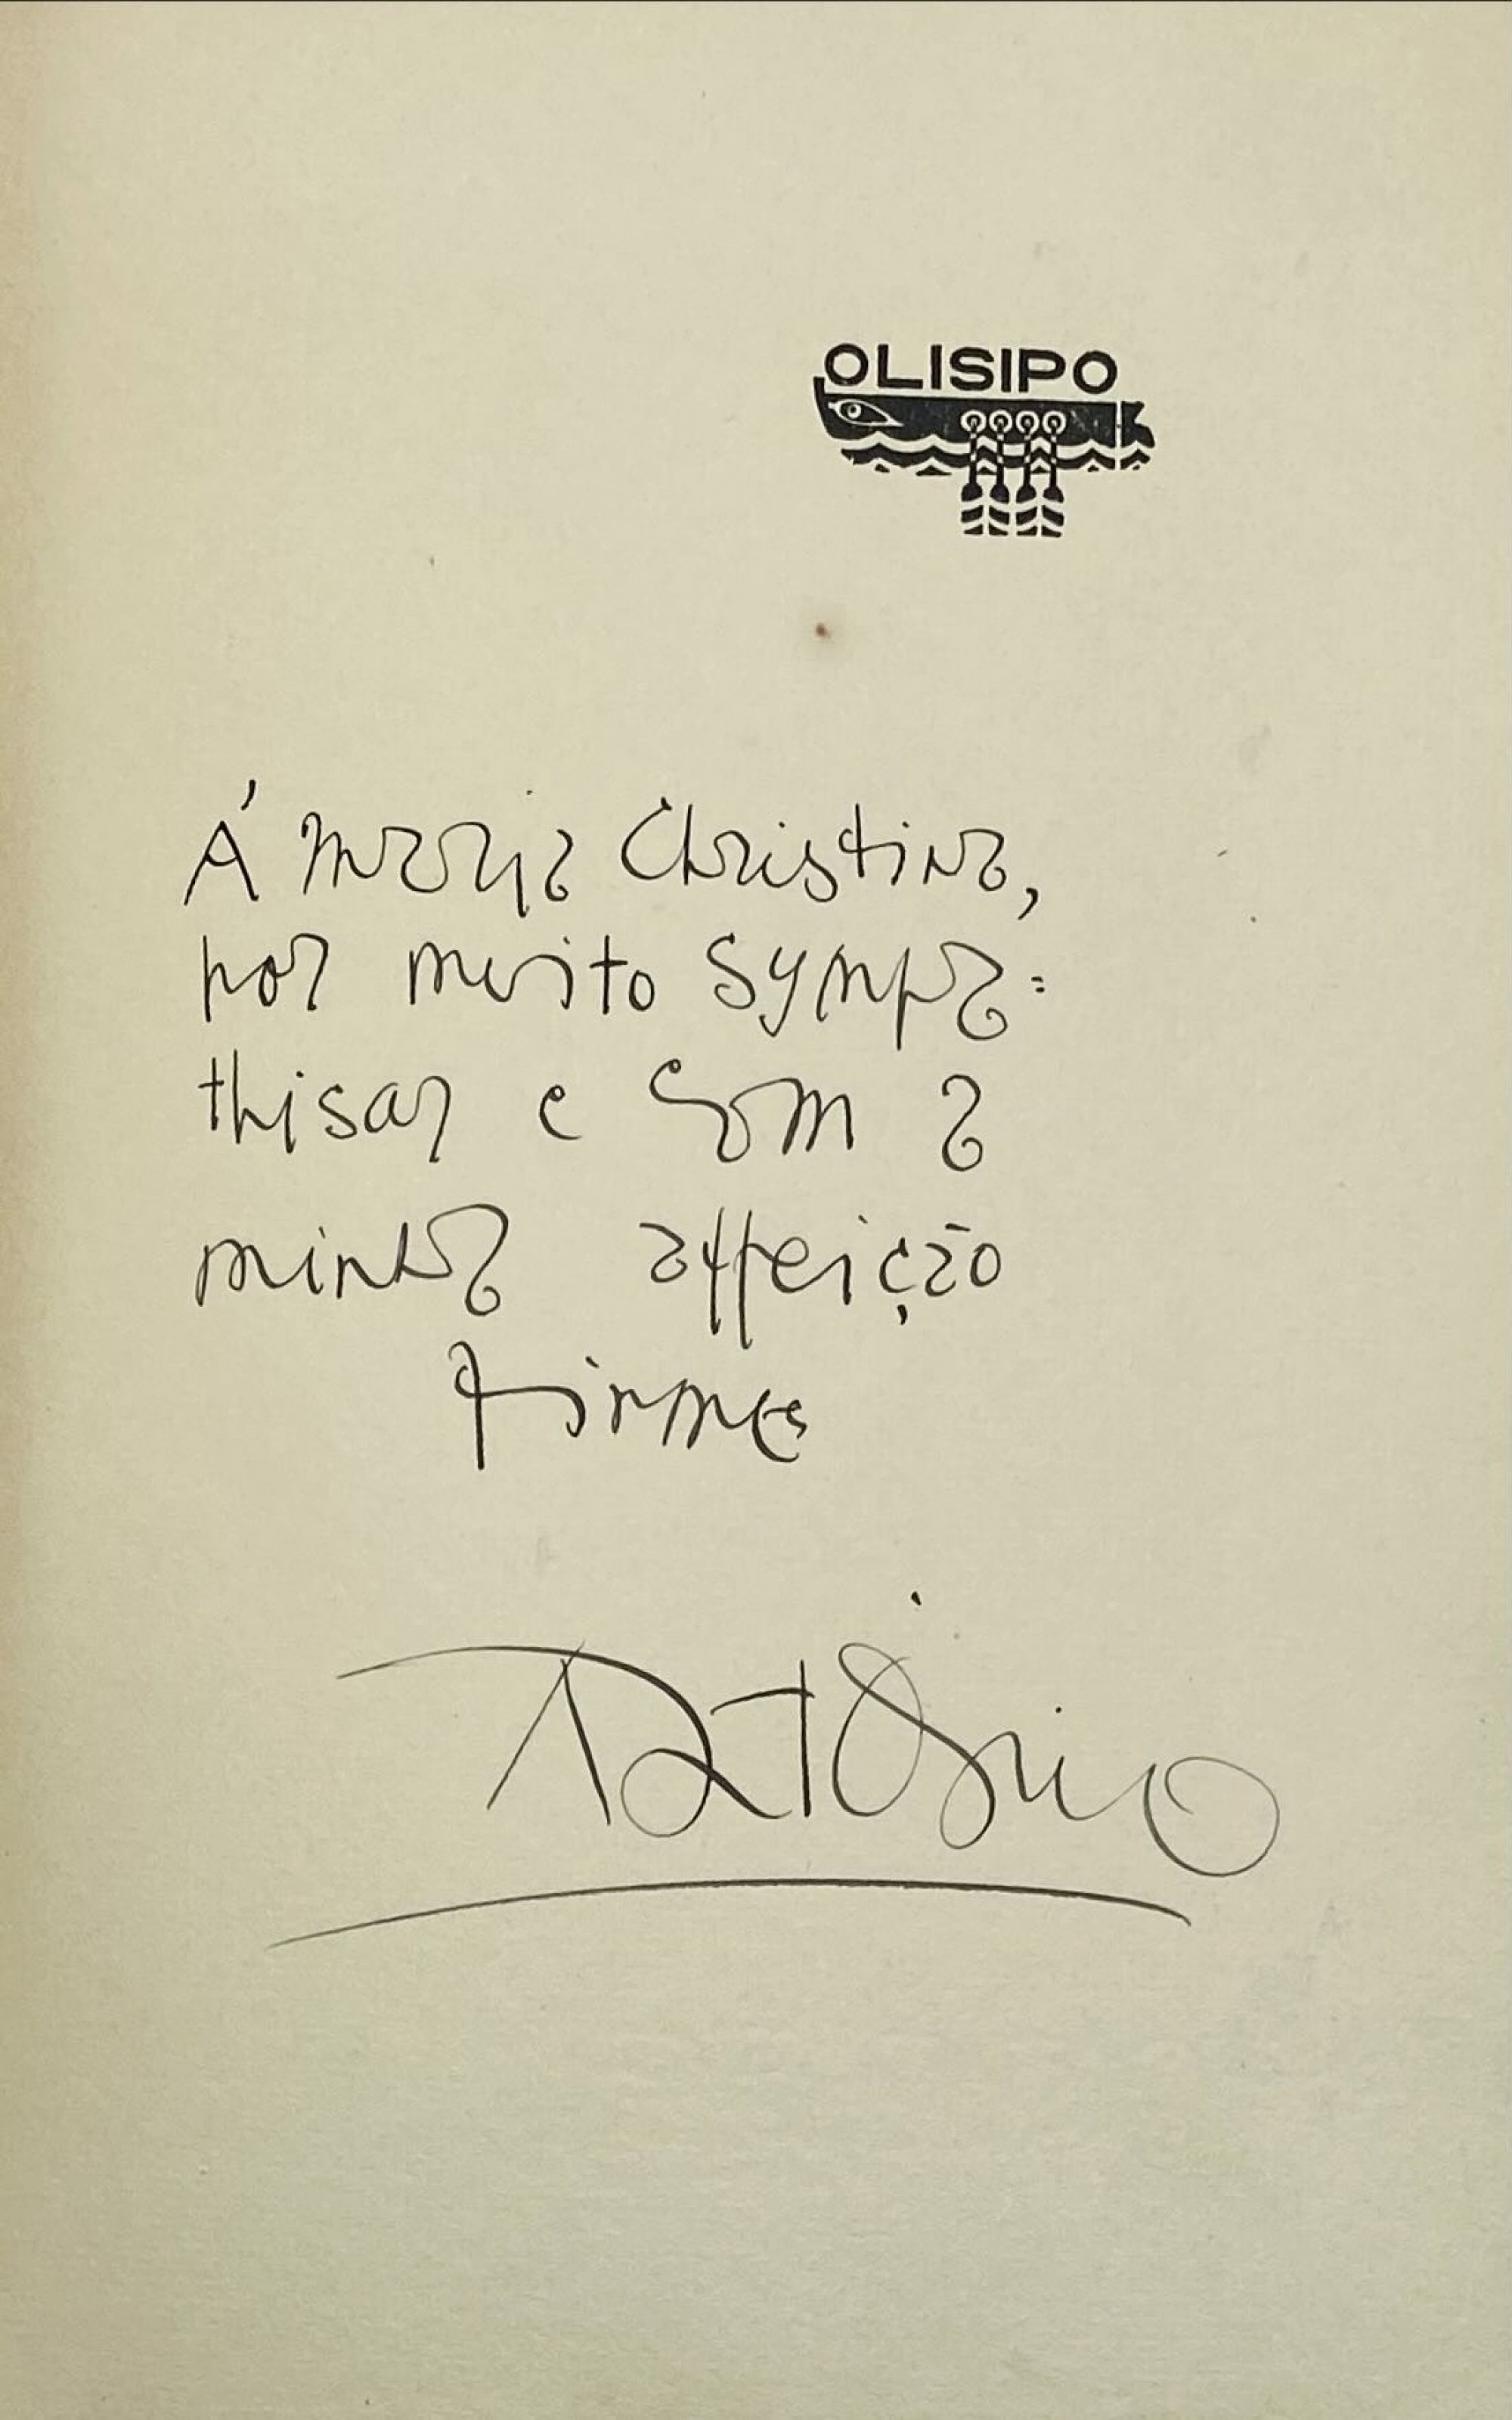 OLISIPO
Á Maria Christina,
por muito sympa=
thisar e com a
minha affeição
firme